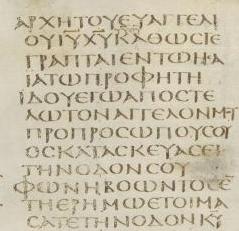 ΑΡΧΗΤΟΥΕΥΑΓΓΕΛΙ
ΟΥΙ̅Υ̅Χ̅Υ̅ΚΑΘΩϹΓΕ
ΓΡΑΠΤΑΙΕΝΤΩΗϹΑ
ΙΑΤΩΠΡΟΦΗΤΗ
ΙΔΟΥΕΓΩΑΠΟϹΤΕ
ΛΩΤΟΝΑΓΓΕΛΟΝΜΟΥ
ΠΡΟΠΡΟϹΩΠΟΥϹΟΥ
ΟϹΚΑΤΑϹΚΕΥΑϹΕΙ
ΤΗΝΟΔΟΝϹΟΥ
ΦΩΝΗΒΟΩΝΤΟϹΕ̅
ΤΗΕΡΗΜΩΕΤΟΙΜΑ
ϹΑΤΕΤΗΝΟΔΟΝΚ̅Υ̅